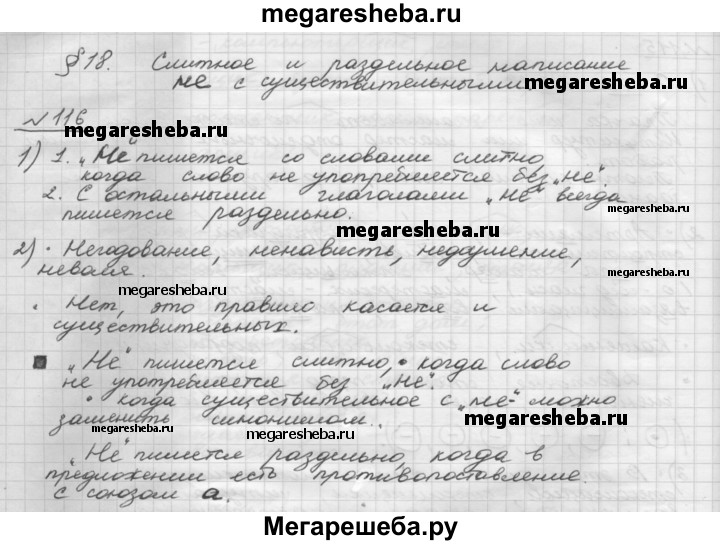 megaresheba.ru
§18. Слитное и раздельное написание
не с существительными.
megaresheba.ru
№116
megaresheba.ru
1) 1. „Не" пишется со словами слитно,
когда слово не употребляется без „не".
2. С остальными глаголами „не" всегда
megaresheba.ru
пишется раздельно.
megaresheba.ru
2) • Негодование, ненависть, недоумение,
неваля.
megaresheba.ru
megaresheba.ru
• Нет, это правило касается и
существительных.
„Не" пишется слитно, • когда слово
не употребляется без „не".
• когда существительное с „не-" можно
заменить синонимом.
megaresheba.ru
megaresheba.ru
megaresheba.ru
„Не" пишется раздельно, когда в
предложении есть противопоставление
с союзом а.
Мегарешеба.ру